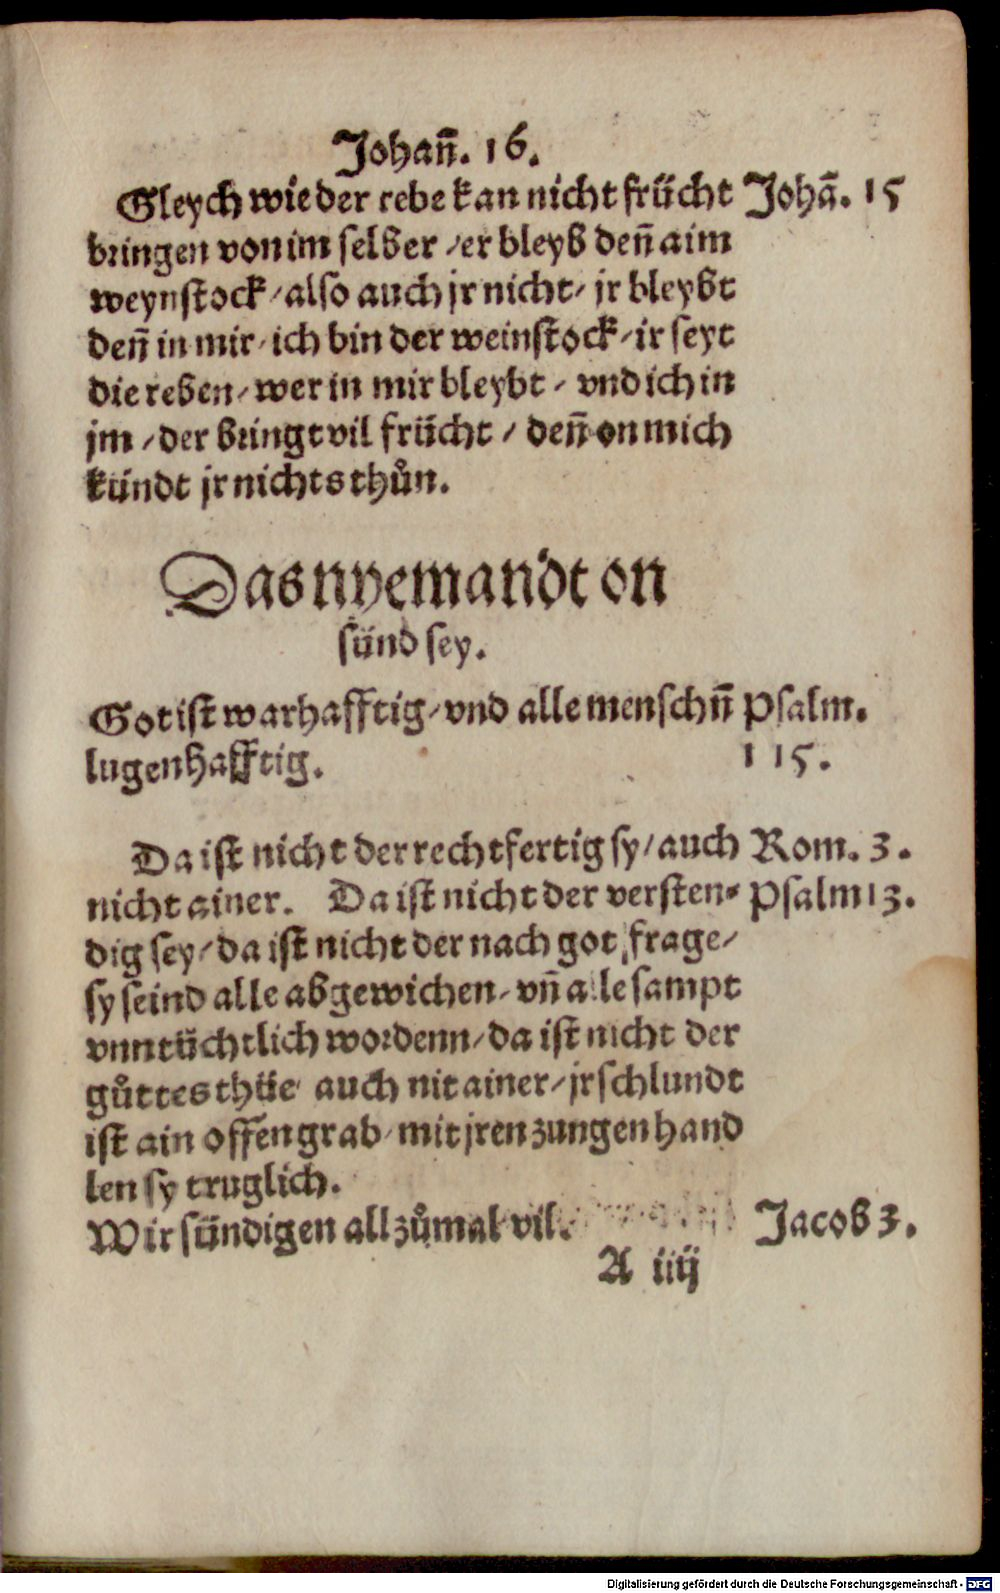 Johañ. 16.
Gleych wie der rebe kan nicht frücht Johã. 15
bringen von im selber / er bleyb deñ aim
weynstock / also auch jr nicht / jr bleybt
deñ in mir / ich bin der weinstock / ir seyt
die reben / wer in mir bleybt / vnd ich in
jm / der bringt vil frücht / deñ on mich
kündt jr nichts thůn.
Das nyemandt on
sünd sey.
Got ist warhafftig / vnd alle menschñ Psalm.
lugenhafftig. 115.
Da ist nicht der rechtfertig sy / auch Rom. 3.
nicht ainer. Da ist nicht der versten⸗ Psalm 13.
dig sey / da ist nicht der nach got frage /
sy seind alle abgewichen / vñ alle sampt
vnntüchtlich wordenn / da ist nicht der
gůttes thüe auch nit ainer / jr schlundt
ist ain offen grab / mit jren zungen hand
len sy truglich.
Wir sündigen all zůmal vil. Jacob 3.
A iiij
Digitalisierung gefördert durch die Deutsche Forschungsgemeinschaft - DFG